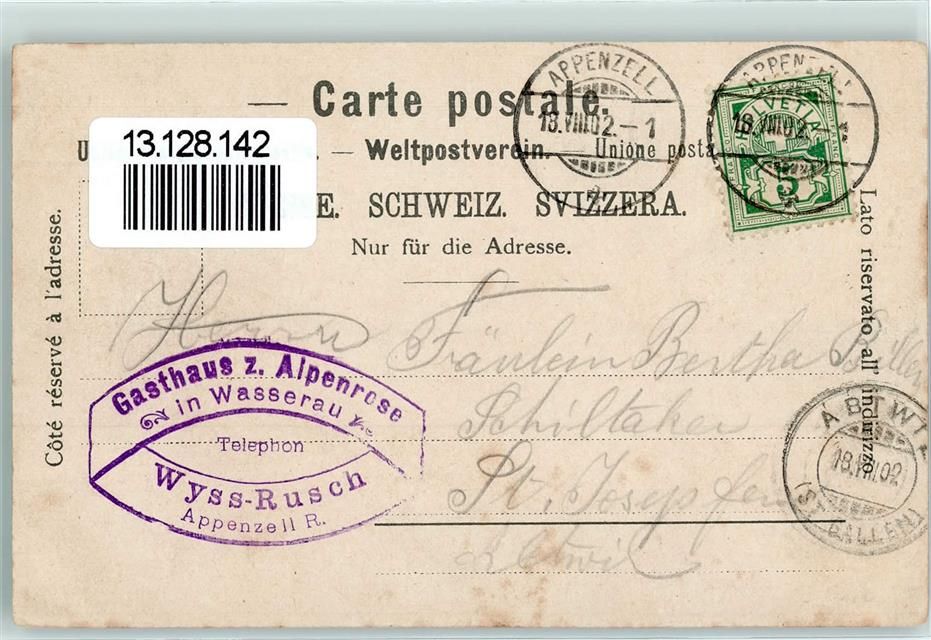 — Carte postale.
13.128.142
U — Weltpostverein. — Unione posta
E. SCHWEIZ. SVIZZERA.
Nur für die Adresse.
APPENZELL
18.VIII.02.-1
APPENZELL
18.VIII.02.
HELVETIA
5
Côté réservé à l'adresse.
Lato riservato all' indirizzo
Herrn
Fräulein Bertha
St. Josephen
Abtwil
Gasthaus z. Alpenrose
in Wasserau
Telephon
Wyss-Rusch
Appenzell R.
ABTWIL
18.VIII.02
(ST. GALLEN)